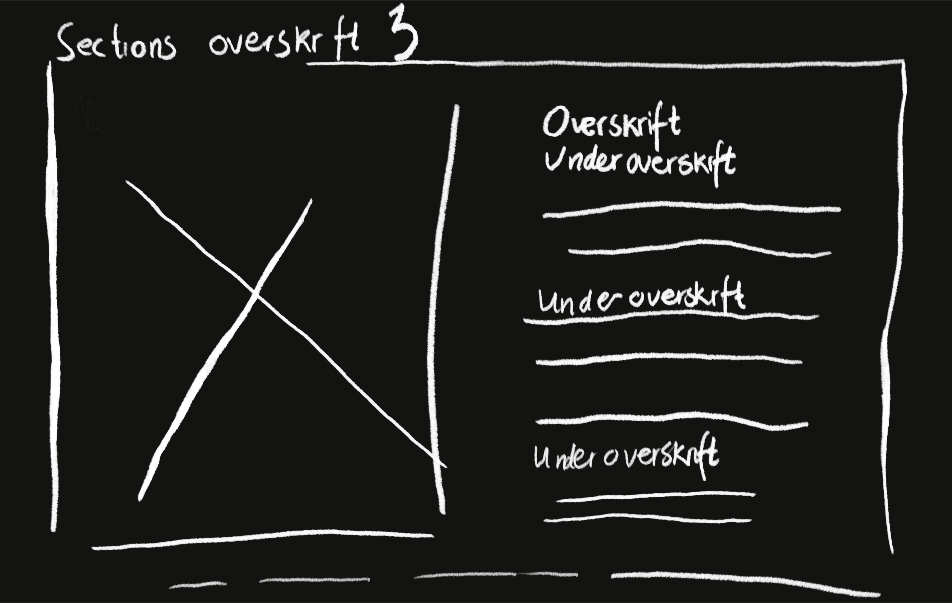 Sections overskrift 3
Overskrift
Underoverskift
Underoverskrift
Underoverskrift